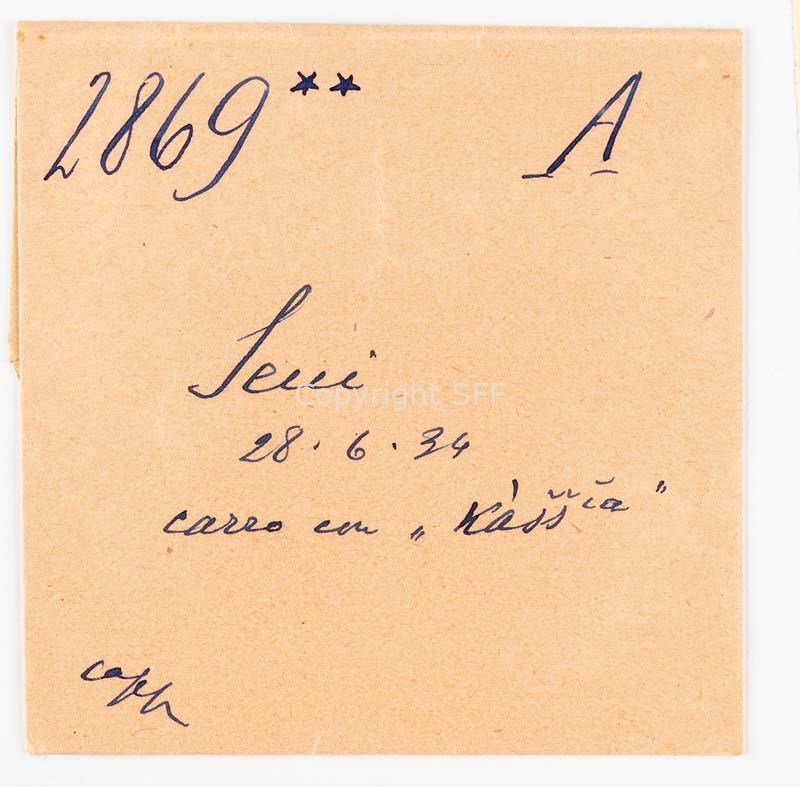 2869** A
Seui
28.6.34
carro con „Kàšši̯a"
Copyright SFF